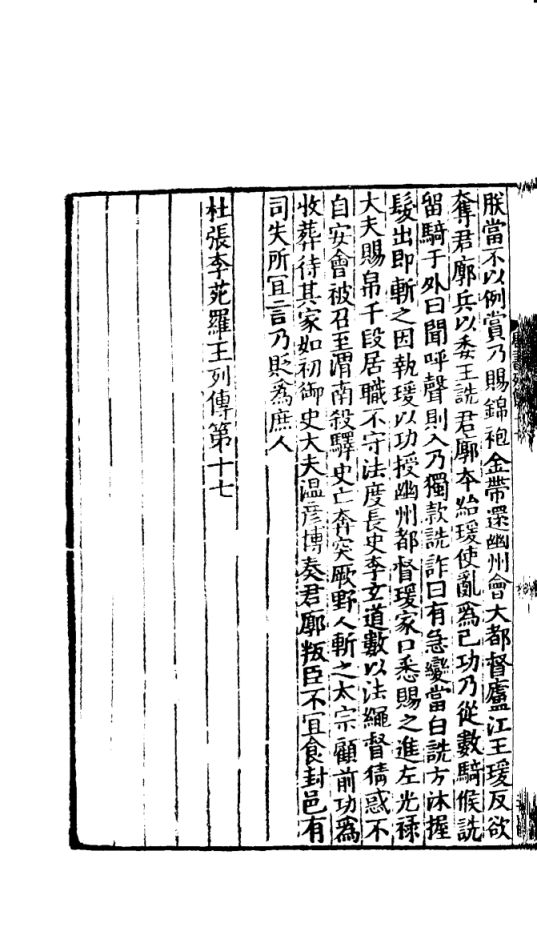 朕當不以例賞乃賜錦袍金帶還幽州會大都督廬江王瑗反欲
奪君廓兵以委王詵君廓本紿瑗使亂爲己功乃從數騎候詵
留騎于外曰聞呼聲則入乃獨款詵詐曰有急變當白詵方沐握
髮出即斬之因執瑗以功授幽州都督瑗家口悉賜之進左光祿
大夫賜帛千段居職不守法度長史李玄道數以法繩督猜惑不
自安會被召至渭南殺驛史亡奔突厥野人斬之太宗顧前功爲
收葬待其家如初御史大夫温彦博奏君廓叛臣不宜食封邑有
司失所宜言乃貶爲庶人
杜張李苑羅王列傳第十七